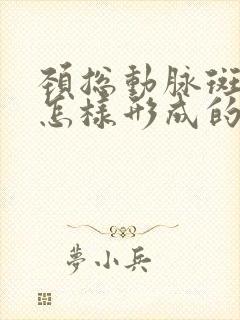 頸總動脉斑
怎樣形成的
夢小兵